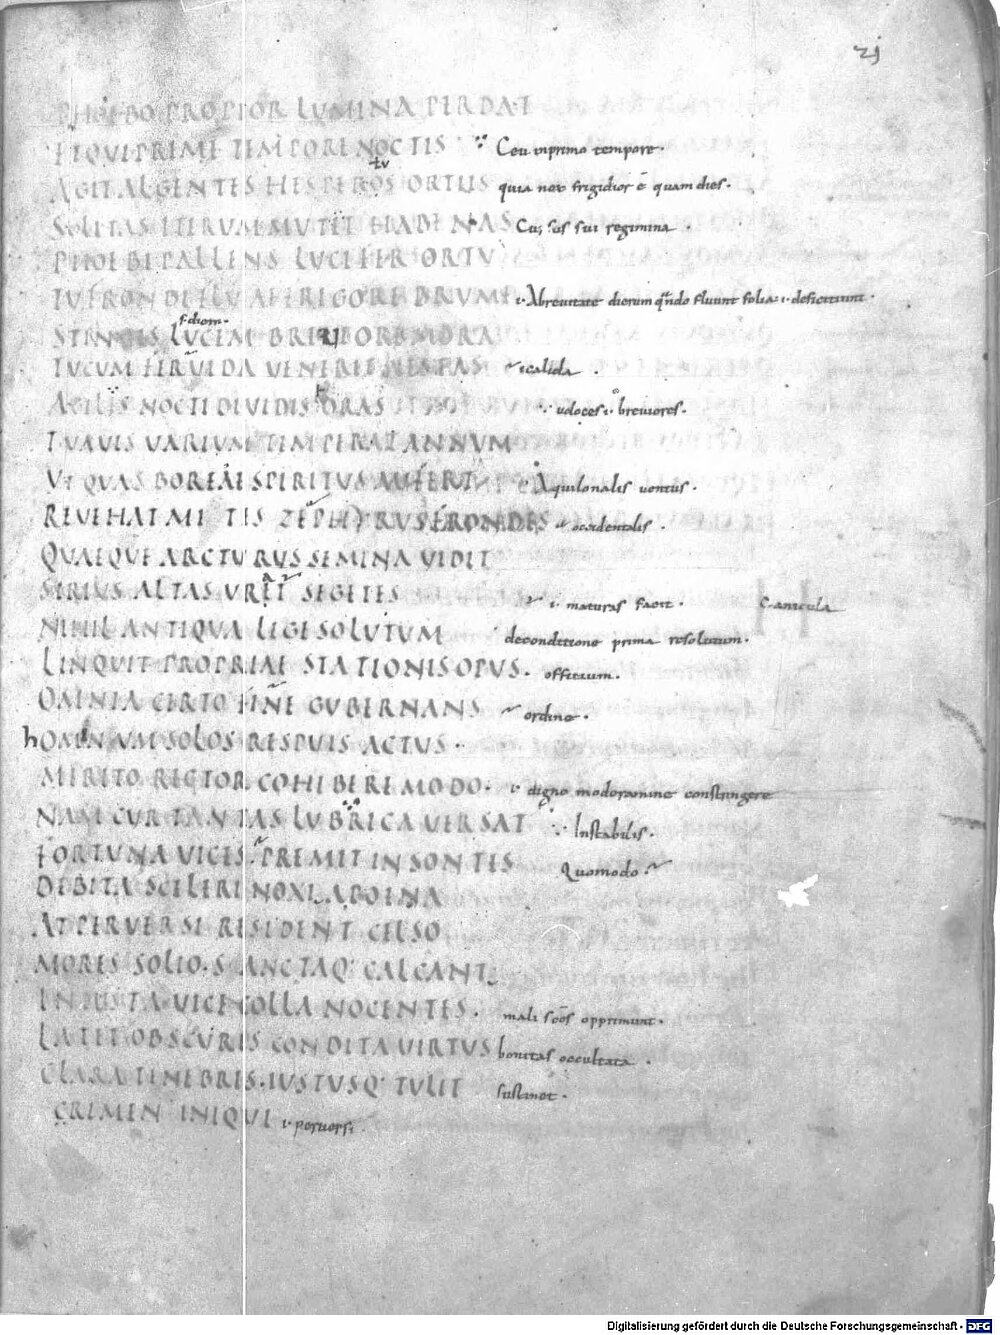 21
PHOEBO PROPIOR LUMINA PERDAT
ET QUI PRIMAE TEMPORE NOCTIS Ceu inprimo tempore.
AGIT ALGENTES HESPEROS ORTUS quia nox frigidior ē quam dies.
SOLITAS ITERUM MUTET HABENAS sui regimina.
PHOEBI PALLENS LUCIFER ORTU
TU FRONDIFLUAE FRIGORE BRUMAE Abreuitate dierum qndo fluunt folia .i. deficiunt.
s. diem.
STRINGIS LUCEM BREUIORE MORA
TU CUM FERUIDA UENERIT AESTAS calida.
AGILES NOCTI DIUIDIS ORAS ueloces .i. breuiores.
TUA UIS UARIUM TEMPERAT ANNUM
UT QUAS BOREAE SPIRITUS AUFERT Aquilonalis uentus.
REUEHAT MITIS ZEPHYRUS FRONDES occidentalis.
QUAEQUE ARCTURUS SEMINA UIDIT
SIRIUS ALTAS URAT SEGETES .i. maturas facit. Canicula
NIHIL ANTIQUA LEGE SOLUTUM deconditione prima resolutum.
LINQUIT PROPRIAE STATIONIS OPUS. officium.
OMNIA CERTO FINE GUBERNANS ordine.
hOMINUM SOLOS RESPUIS ACTUS.
MERITO RECTOR COHIBERE MODO. .i. digno moderamine constringere
NAM CUR TANTAS LUBRICA UERSAT Instabilis.
FORTUNA UICES. PREMIT INSONTES Quomodo
DEBITA SCELERI NOXIA POENA
AT PERUERSI RESIDENT CELSO
MORES SOLIO. SANCTAQ: CALCANT
INIUSTA UICE COLLA NOCENTES. mali scōs opprimunt.
LATET OBSCURIS CONDITA UIRTUS bonitas occultata.
CLARA TENEBRIS. IUSTUSQ: TULIT sustinet.
CRIMEN INIQUI .i. peruersi
Digitalisierung gefördert durch die Deutsche Forschungsgemeinschaft - DFG